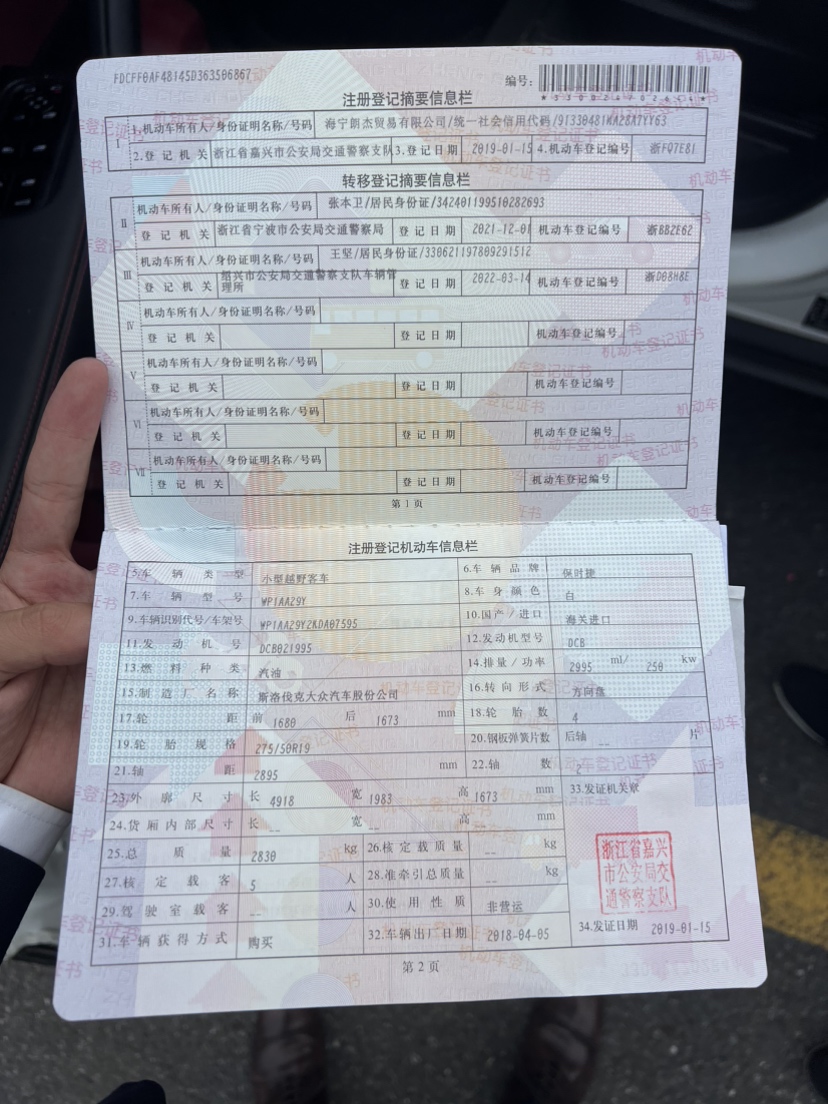 FDCFF0AF48145D363506867
编号:
注册登记摘要信息栏
Ⅰ 1.机动车所有人/身份证明名称/号码 海宁朗杰贸易有限公司/统一社会信用代码/91330481MA28A7YY63
2.登记机关 浙江省嘉兴市公安局交通警察支队 3.登记日期 2019-01-15 4.机动车登记编号 浙FQ7E81
转移登记摘要信息栏
Ⅱ 机动车所有人/身份证明名称/号码 张本卫/居民身份证/342401199510282693
登记机关 浙江省宁波市公安局交通警察局 登记日期 2021-12-01 机动车登记编号 浙BB2E62
Ⅲ 机动车所有人/身份证明名称/号码 王坚/居民身份证/330621197809291512
登记机关 绍兴市公安局交通警察支队车辆管理所 登记日期 2022-03-14 机动车登记编号
Ⅳ 机动车所有人/身份证明名称/号码
登记机关 登记日期 机动车登记编号
Ⅴ 机动车所有人/身份证明名称/号码
登记机关 登记日期 机动车登记编号
Ⅵ 机动车所有人/身份证明名称/号码
登记机关 登记日期 机动车登记编号
Ⅶ 机动车所有人/身份证明名称/号码
登记机关 登记日期 机动车登记编号
第1页
注册登记机动车信息栏
5.车辆类型 小型越野客车 6.车辆品牌 保时捷
7.车辆型号 WP1AA29Y 8.车身颜色 白
9.车辆识别代号/车架号 WP1AA29Y2KDA07595 10.国产/进口 海关进口
11.发动机号 DCB021995 12.发动机型号 DCB
13.燃料种类 汽油 14.排量/功率 2995 ml/ 250 kw
15.制造厂名称 斯洛伐克大众汽车股份公司 16.转向形式 方向盘
17.轮距 前 1680 后 1673 mm 18.轮胎数 4
19.轮胎规格 275/50R19 20.钢板弹簧片数 后轴 -- 片
21.轴距 2895 mm 22.轴数 2
23.外廓尺寸 长 4918 宽 1983 高 1673 mm 33.发证机关章
24.货厢内部尺寸 长 -- 宽 -- 高 -- mm
25.总质量 2830 kg 26.核定载质量 -- kg
27.核定载客 5 人 28.准牵引总质量 -- kg
浙江省嘉兴
市公安局交
通警察支队
29.驾驶室载客 -- 人 30.使用性质 非营运
31.车辆获得方式 购买 32.车辆出厂日期 2018-04-05 34.发证日期 2019-01-15
第2页